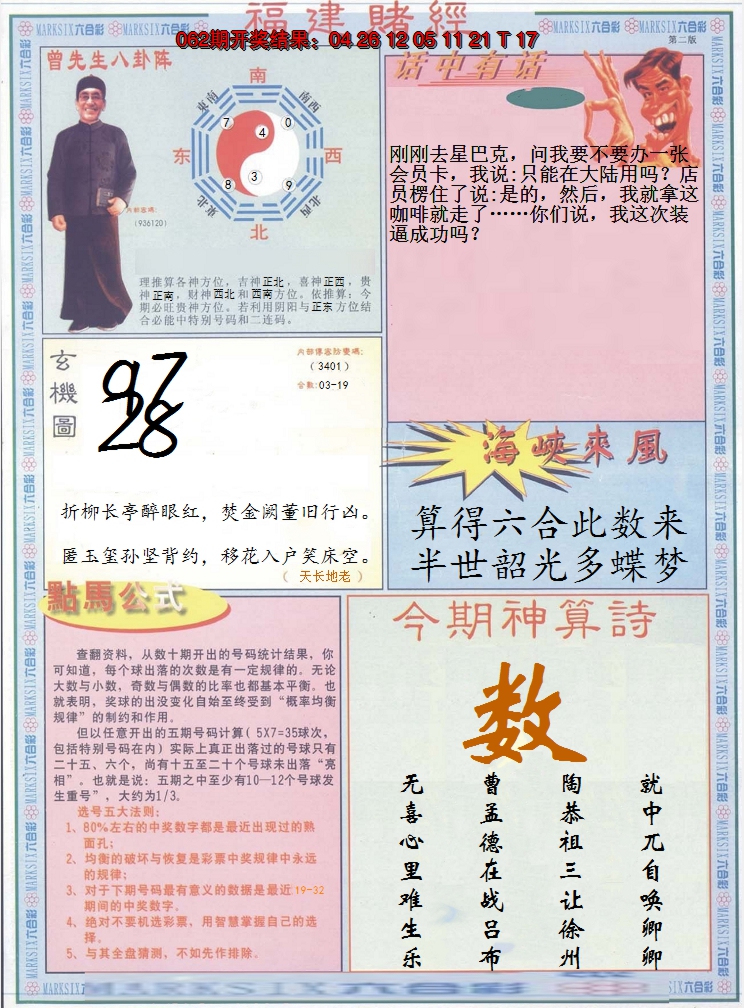 福建賭經
062期开奖结果：04 26 12 05 11 21 T 17
第二版
MARKSIX六合彩
曾先生八卦阵
南
东南
西南
东
西
东北
西北
北
7
4
0
3
8
9
内部密码:
(936120)
理推算各神方位，吉神正北，喜神正西，贵
神正南，财神西北和西南方位。依推算：今
期必旺贵神方位。若利用阴阳与正东方位结
合必能中特别号码和二连码。
话中有话
刚刚去星巴克，问我要不要办一张
会员卡，我说:只能在大陆用吗？店
员楞住了说:是的，然后，我就拿这
咖啡就走了……你们说，我这次装
逼成功吗？
玄機圖
97
28
(3401)
合数:03-19
折柳长亭醉眼红，焚金阙董旧行凶。
匿玉玺孙坚背约，移花入户笑床空。
（ 天长地老 ）
海峽來風
算得六合此数来
半世韶光多蝶梦
點馬公式
查翻资料，从数十期开出的号码统计结果，你
可知道，每个球出落的次数是有一定规律的。无论
大数与小数，奇数与偶数的比率也都基本平衡。也
就表明，奖球的出没变化自始至终受到“概率均衡
规律”的制约和作用。
但以任意开出的五期号码计算( 5X7=35球次，
包括特别号码在内) 实际上真正出落过的号球只有
二十五、六个，尚有十五至二十个号球未出落“亮
相”。也就是说：五期之中至少有10—12个号球发
生重号”，大约为1/3。
选号五大法则：
1、80%左右的中奖数字都是最近出现过的熟
面孔；
2、均衡的破坏与恢复是彩票中奖规律中永远
的规律；
3、对于下期号码最有意义的数据是最近19-32
期间的中奖数字。
4、绝对不要机选彩票，用智慧掌握自己的选
择。
5、与其全盘猜测，不如先作排除。
今期神算詩
数
就中兀自唤卿卿
陶恭祖三让徐州
曹孟德在战吕布
无喜心里难生乐